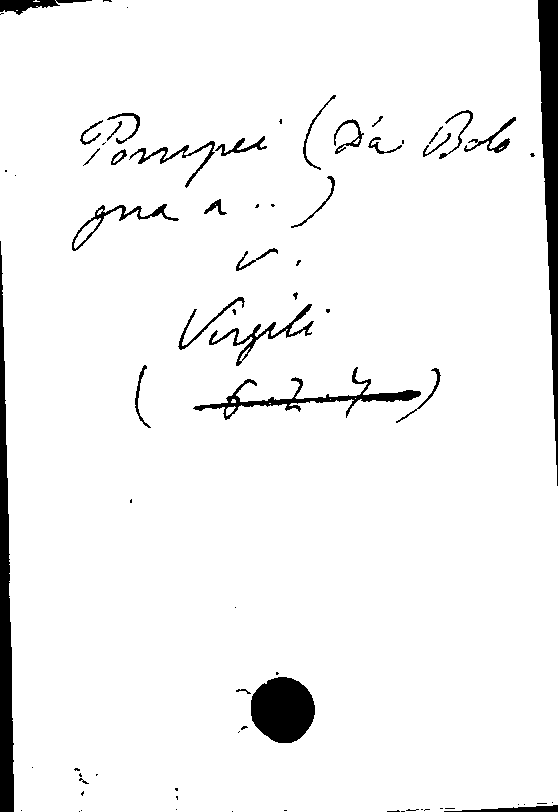 Pompei (Da Bolo-
gna a ..)
v.
Virgili
( 6.2.7 )